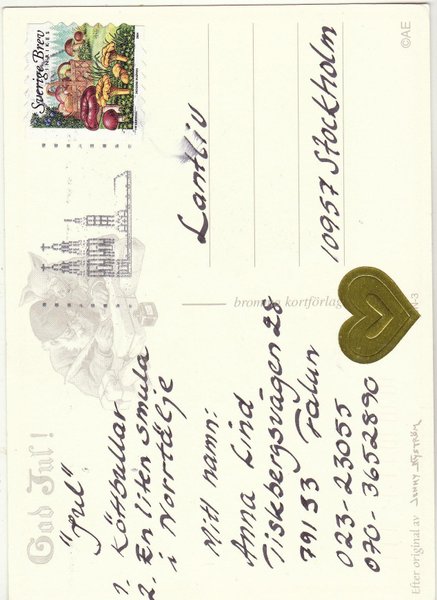 God Jul!
"Jul"
1. Köttbullar
2. En liten smula
i Norrtälje
Mitt namn:
Anna Lind
Tiskbergsvägen 28
791 33 Falun
023-23055
070-3652890
Efter original av JENNY NYSTRÖM
bromma kortförlag
Sverige Brev
INRIKES
Lantliv
10957 Stockholm
©AE